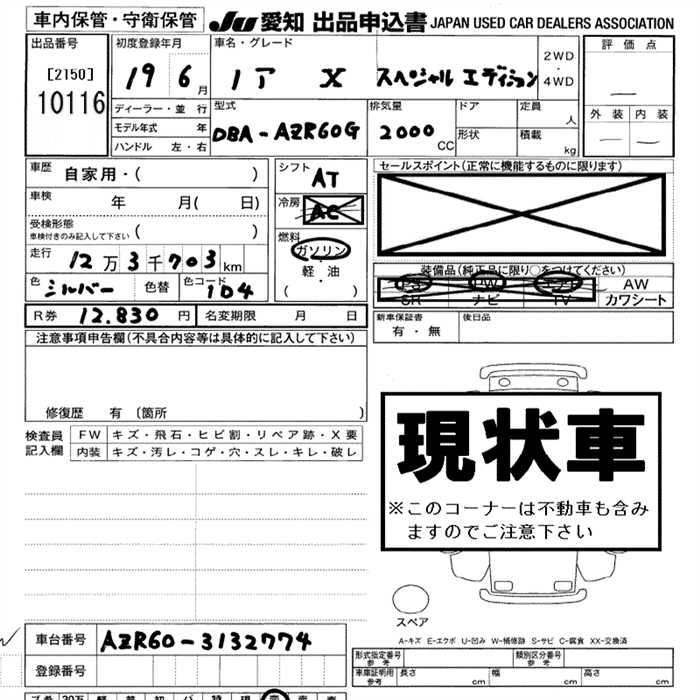 車内保管・守衛保管 JU 愛知 出品申込書 JAPAN USED CAR DEALERS ASSOCIATION
出品番号 初度登録年月 車名・グレード 2WD・4WD 評価点
[2150]
10116
19 6月 ノア X スペシャル エディション
ディーラー・並行 型式 排気量 ドア 定員 人 外装 内装
モデル年式 年 DBA-AZR60G 2000 CC 形状 積載 kg
ハンドル 左・右
車歴 自家用・( ) シフト AT セールスポイント(正常に機能するものに限ります)
車検 年 月( 日) 冷房 AC
受検形態 ( ) 燃料
車検付きのみ記入して下さい
走行 12万3千703km ガソリン
軽・油
( )
装備品(純正品に限り○をつけてください)
色 シルバー 色替 色コード 1D4 PS PW エアB AW
SR ナビ TV カワシート
R券 12.830円 名変期限 月 日 新車保証書 後日品
有・無
注意事項申告欄(不具合内容等は具体的に記入して下さい)
修復歴 有 〔箇所 〕
検査員 FW キズ・飛石・ヒビ割・リペア跡・X要
記入欄 内装 キズ・汚レ・コゲ・穴・スレ・キレ・破レ
現状車
※このコーナーは不動車も含み
ますのでご注意下さい
スペア
A-キズ E-エクボ U-凹み W-補修跡 S-サビ C-腐食 XX-交換済
車台番号 AZR60-3132774
形式指定番号 参考 類別区分番号 参考
登録番号 車庫証明用 参考 長さ cm 幅 cm 高さ cm